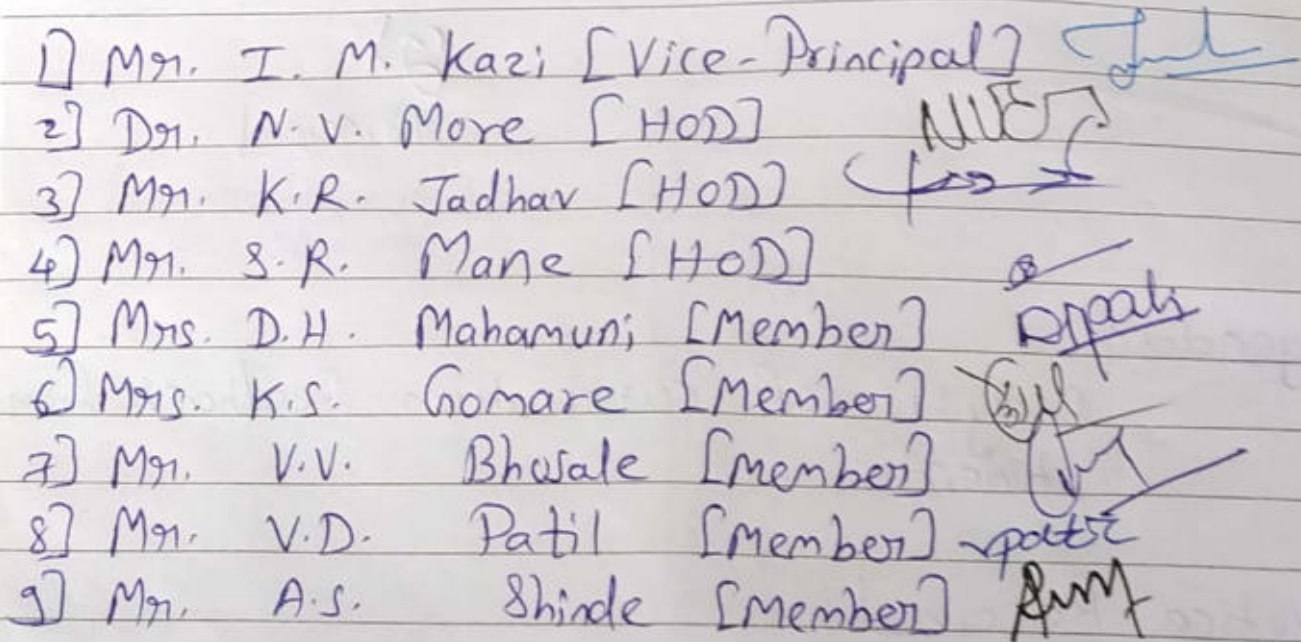 1] Mr. I. M. Kazi [Vice-Principal]
2] Dr. N.V. More [HOD]
3] Mr. K.R. Jadhav [HOD]
4] Mr. S.R. Mane [HOD]
5] Mrs. D.H. Mahamuni [Member]
6] Mrs. K.S. Gomare [Member]
7] Mr. V.V. Bhosale [Member]
8] Mr. V.D. Patil [Member]
9] Mr. A.S. Shinde [Member]